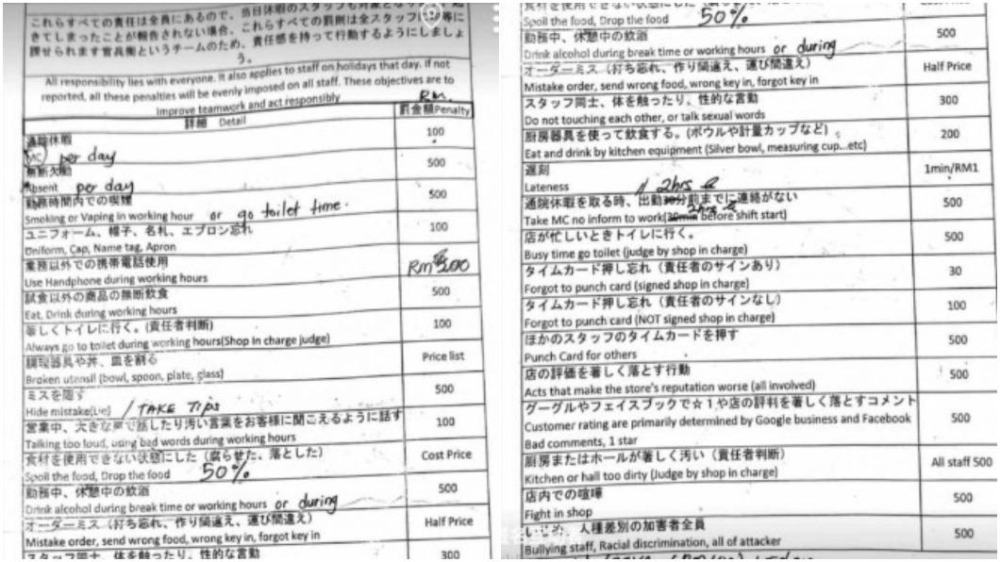 これらすべての責任は全員にあるので、当日休暇のスタッフも対象と
きてしまったことが報告されない場合、これらすべての罰則は全スタッフに 等に
課せられます官兵衛というチームのため、責任感を持って行動するようにしましょ
う。
All responsibility lies with everyone. It also applies to staff on holidays that day. If not
reported, all these penalties will be evenly imposed on all staff. These objectives are to
improve teamwork and act responsibly
Rm.
詳細 Detail 罰金額Penalty
通院休暇
MC per day 100
無断欠勤
Absent per day 500
勤務時間内での喫煙
Smoking or Vaping in working hour or go toilet time. 500
ユニフォーム、帽子、名札、エプロン忘れ
Uniform, Cap, Name tag, Apron 100
業務以外での携帯電話使用
Use Handphone during working hours Rm
試食以外の商品の無断飲食
Eat, Drink during working hours 500
著しくトイレに行く。(責任者判断)
Always go to toilet during working hours(Shop in charge judge) 100
調理器具や丼、皿を割る
Broken utensil (bowl, spoon, plate, glass) Price list
ミスを隠す
Hide mistake(Lie) / TAKE Tips 500
営業中、大きな声で話したり汚い言葉をお客様に聞こえるように話す
Talking too loud, using bad words during working hours 100
食材を使用できない状態にした（腐らせた、落とした）
Spoil the food, Drop the food 50% Cost Price
勤務中、休憩中の飲酒
Drink alcohol during break time or working hours or during 500
オーダーミス（打ち忘れ、作り間違え、運び間違え）
Mistake order, send wrong food, wrong key in, forgot key in Half Price
スタッフ同士、体を触ったり、性的な言動 300
食材を使用できない状態にした
Spoil the food, Drop the food 50%
勤務中、休憩中の飲酒
Drink alcohol during break time or working hours or during 500
オーダーミス（打ち忘れ、作り間違え、運び間違え）
Mistake order, send wrong food, wrong key in, forgot key in Half Price
スタッフ同士、体を触ったり、性的な言動
Do not touching each other, or talk sexual words 300
厨房器具を使って飲食する。(ボウルや計量カップなど)
Eat and drink by kitchen equipment (Silver bowl, measuring cup...etc) 200
遅刻
Lateness 1min/RM1
通院休暇を取る時、出勤30分前までに連絡がない 2hrs
Take MC no inform to work(30min before shift start) 2hrs 500
店が忙しいときトイレに行く。
Busy time go toilet (judge by shop in charge) 500
タイムカード押し忘れ（責任者のサインあり）
Forgot to punch card (signed shop in charge) 30
タイムカード押し忘れ（責任者のサインなし）
Forgot to punch card (NOT signed shop in charge) 100
ほかのスタッフのタイムカードを押す
Punch Card for others 500
店の評価を著しく落とす行動
Acts that make the store's reputation worse (all involved) 500
グーグルやフェイスブックで☆１や店の評判を著しく落とすコメント
Customer rating are primarily determined by Google business and Facebook
Bad comments, 1 star 500
厨房またはホールが著しく汚い（責任者判断）
Kitchen or hall too dirty (Judge by shop in charge) All staff 500
店内での喧嘩
Fight in shop 500
いじめ、人種差別の加害者全員
Bullying staff, Racial discrimination, all of attacker 500